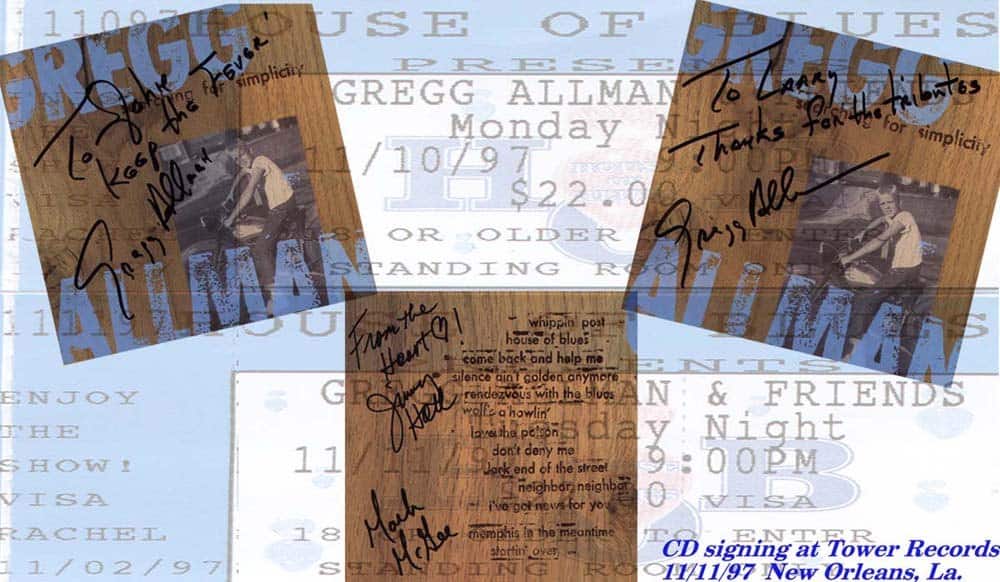 110971 HOUSE OF BLUES
PRESENTS
GREGG ALLMAN
Monday Night
11/10/97 9:00PM
$22.00 VISA
18 OR OLDER TO ENTER
STANDING ROOM ONLY
GREGG
searching for simplicity
To John
Keep the Fever!
Gregg Allman
ALLMAN
GREGG
searching for simplicity
To Larry
Thanks for the tributes
Gregg Allman
ALLMAN
111197 HOUSE OF BLUES
PRESENTS
GREGG ALLMAN & FRIENDS
Tuesday Night
11/11/97 9:00PM
VISA
18 TO ENTER
STANDING ROOM ONLY
ENJOY
THE
SHOW!
VISA
RACHEL
11/02/97
From the
Heart!
Mark
McGee
whippin post
house of blues
come back and help me
silence ain't golden anymore
rendezvous with the blues
wolf's a howlin'
love the poison
don't deny me
dark end of the street
neighbor, neighbor
i've got news for you
memphis in the meantime
startin' over
CD signing at Tower Records
11/11/97 New Orleans, La.